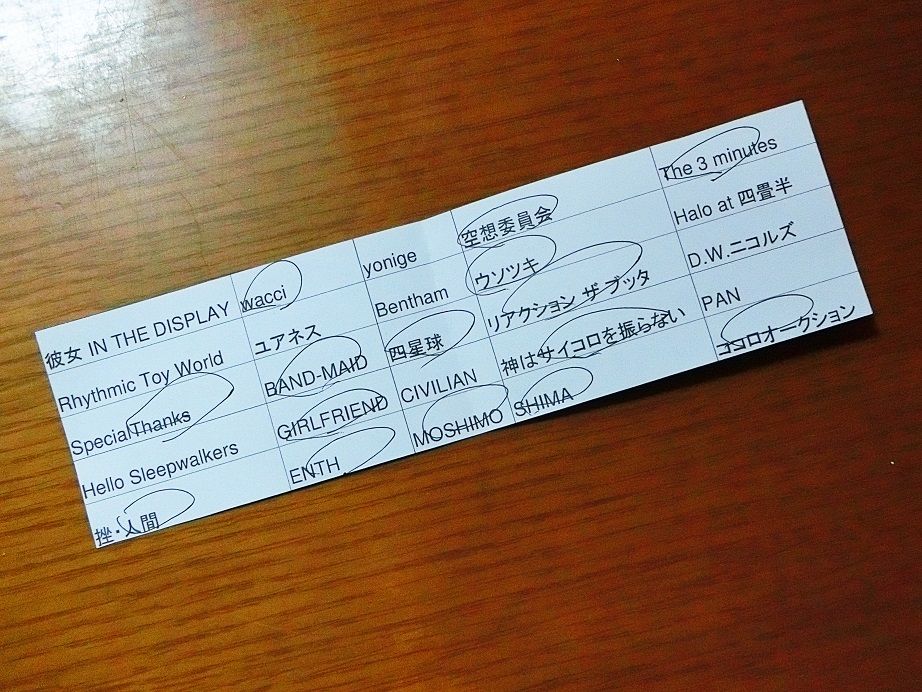 彼女 IN THE DISPLAY wacci yonige 空想委員会 The 3 minutes
Rhythmic Toy World ユアネス Bentham ウソツキ Halo at 四畳半
SpecialThanks BAND-MAID 四星球 リアクション ザ ブッタ D.W.ニコルズ
Hello Sleepwalkers GIRLFRIEND CIVILIAN 神はサイコロを振らない PAN
挫・人間 ENTH MOSHIMO SHIMA ココロオークション